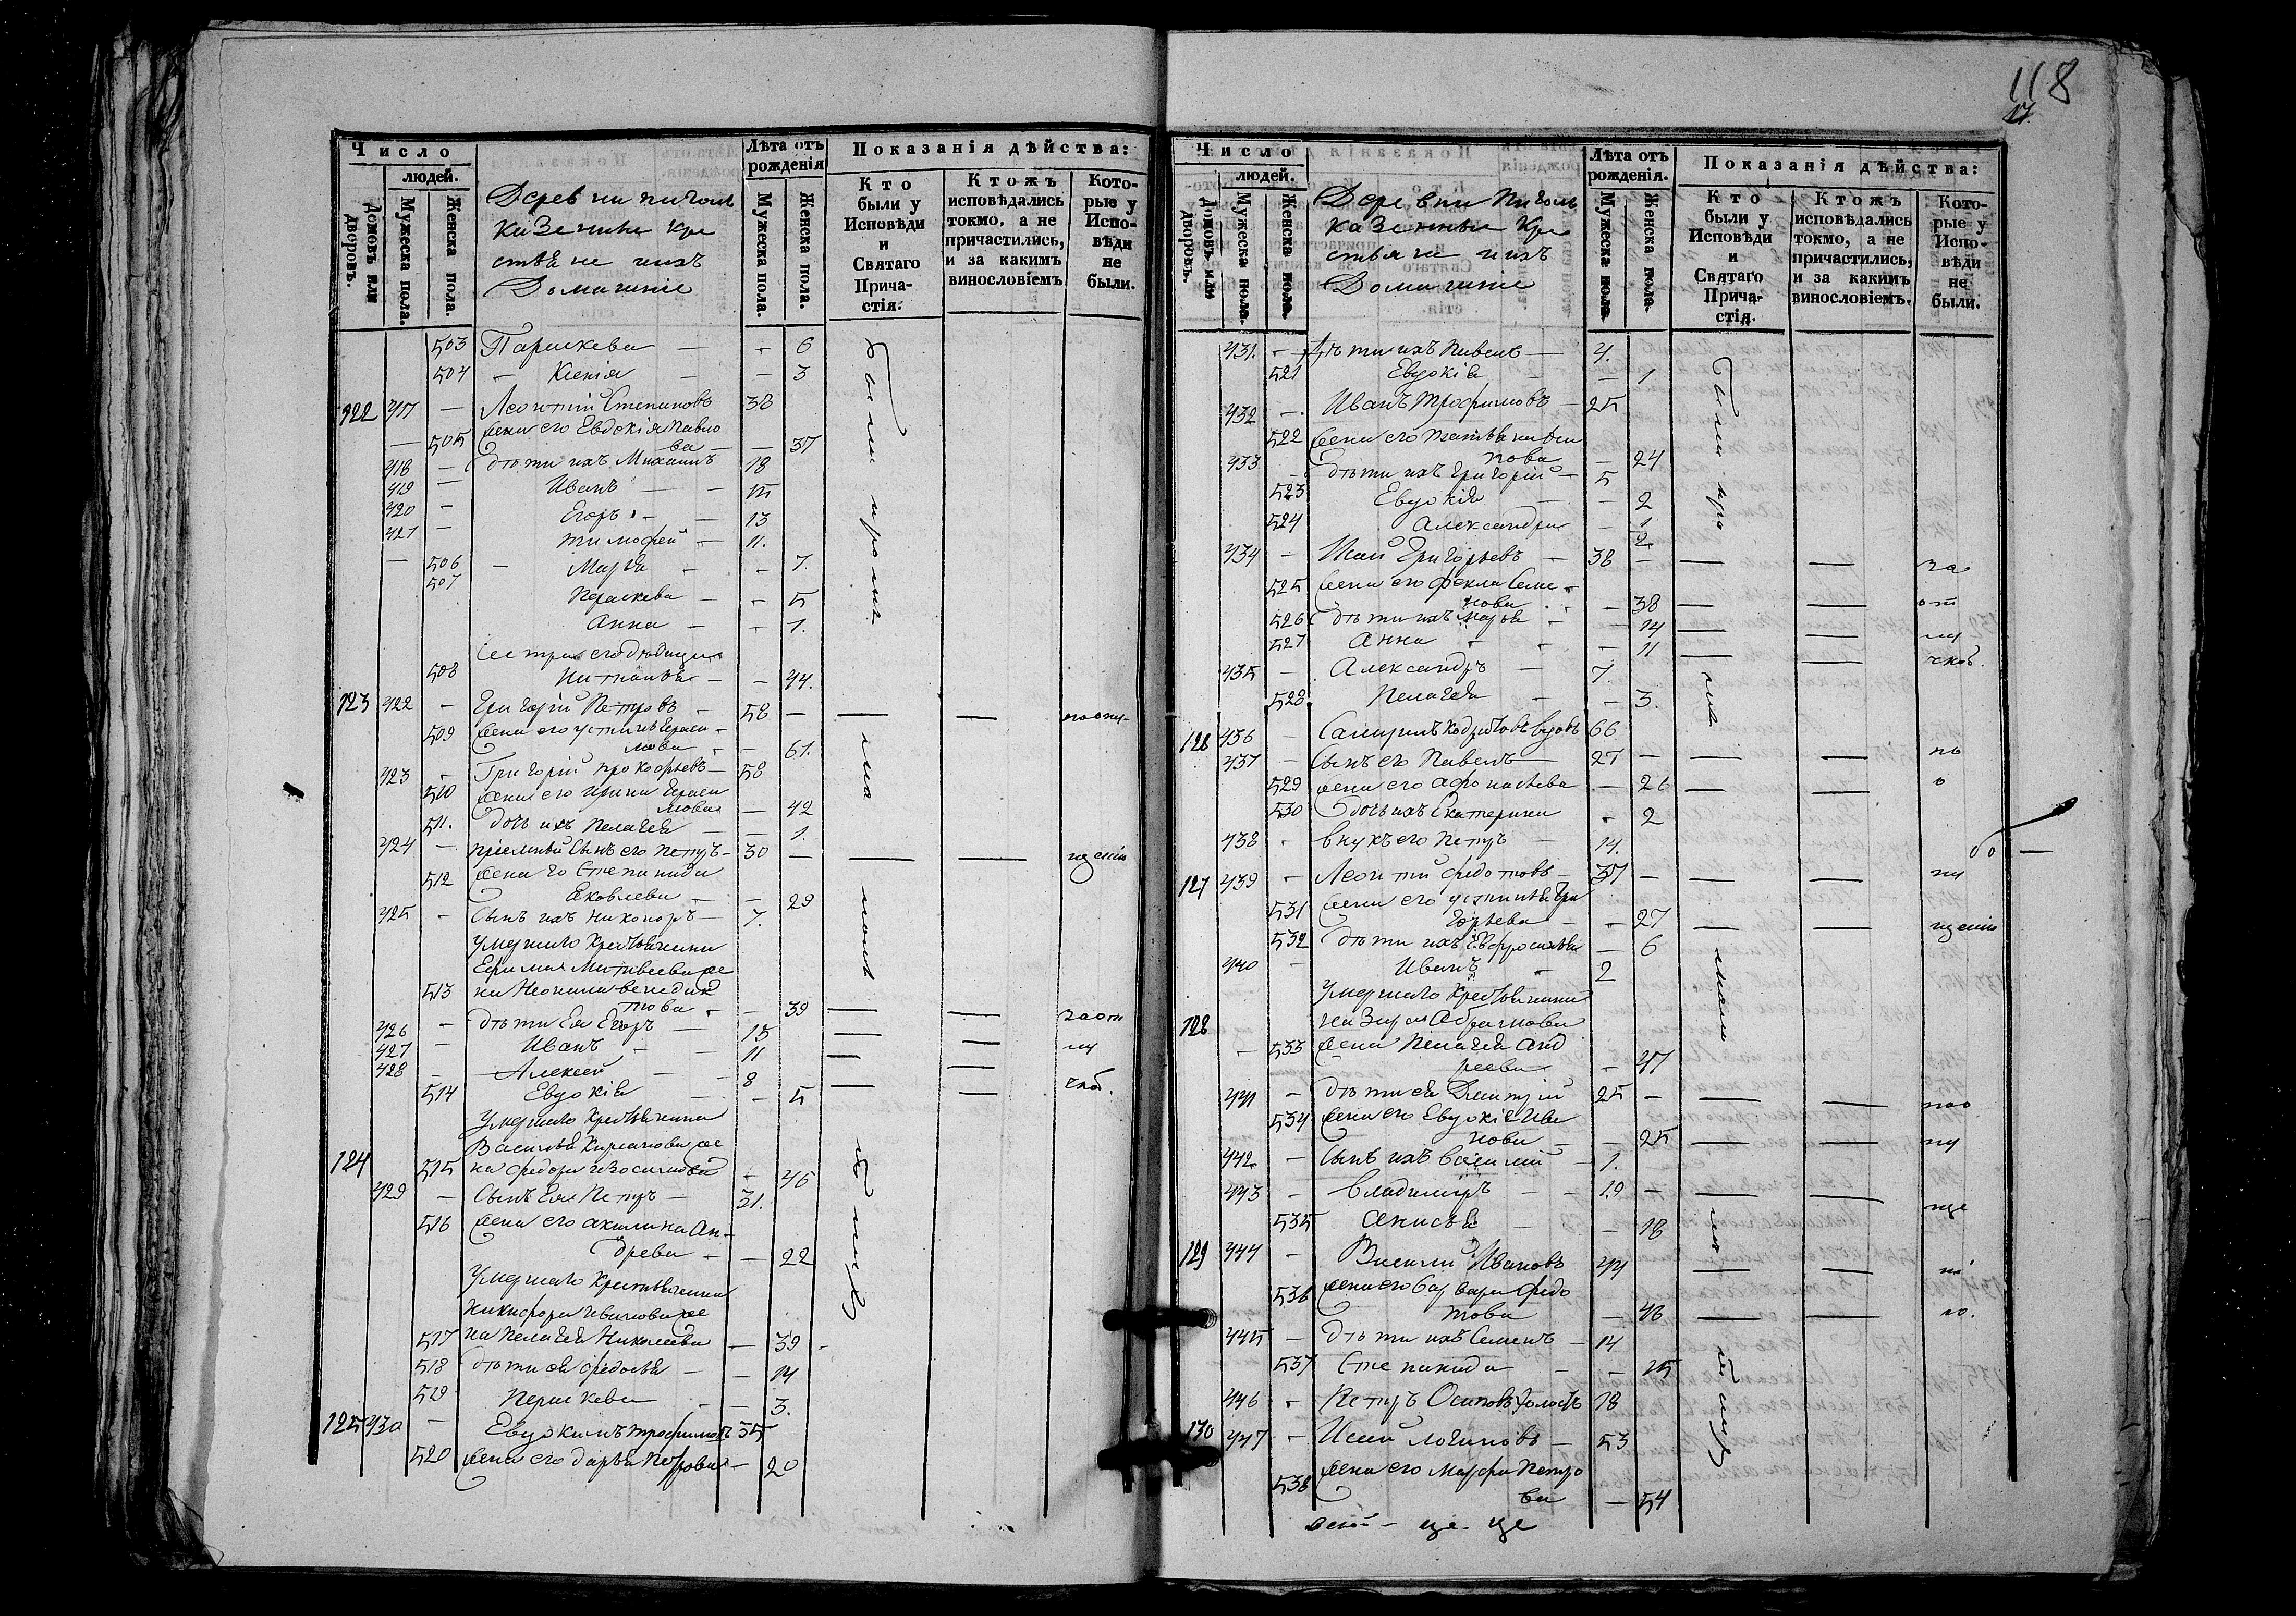 118
17.
Число
людей.
Домовъ или дворовъ.
Мужеска пола.
Женска пола.
Деревни
казенные кре
стьяне и ихъ
Домашніе
Лѣта отъ рожденія
Мужеска пола.
Женска пола.
Показанія дѣйства:
Кто были у Исповѣди и Святаго Прича-стія.
Ктожъ исповѣдались токмо, а не причастились, и за какимъ винословіемъ
Кото-рые у Испо-вѣди не были.
503 Параскева — - 6
504 - Ксенія - - 3
122 417 — Леонтій Степановъ 38
505 жена его Евдокія Павло
ва — — 37
418 — дѣти ихъ Михаилъ 18
419 — Иванъ — - 15
420 - Егоръ - — 13
421 — Тимофей — 11.
— 506 - Марѳа - - 7.
507 Параскева — - 5
Анна - - 1.
Сестра его дѣвица
508 - — 44.
123 422 — Григорій Петровъ - 58 — — —
509 жена его Устинья Гераси
мова - — 61.
423 - Григорій Прокофьевъ — 58
510 жена его Ирина Гераси
мова — 42
511. дочь ихъ Пелагея — — 1.
424 — пріемный сынъ его Петръ - 30 — — —
512 жена его Степанида
Яковлева - — 29
425 - Сынъ ихъ Никоноръ — 7.
Умершаго крестьянина
Ефима Матвеева же
513 на Неонила Венедик
това - — 39 — —
426 — дѣти ея Егоръ — 15 — —
427 — Иванъ - — 11 — —
428 - Алексей — 8 —
514 Евдокія — - 5 — —
Умершаго крестьянина
Василья Кирьянова же
124 515 на Федора - 46
429 — Сынъ ея Петръ — 31.
516 жена его Акилина Ан-
древа - — 22
Умершаго крестьянина
Никифора Иванова же
517 на Пелагея Николаева — 39 -
518 дѣти ея Федосья — — 14
519 Параскева - — 3.
125 430 — Евдокимъ Трофимовъ 35
520 жена его Дарья Петрова — 20
были
у нихъ
Число
людей.
Домовъ или дворовъ.
Мужеска пола.
Женска пола.
Деревни
казенные кре
стьяне и ихъ
Домашніе
Лѣта отъ рожденія.
Мужеска пола.
Женска пола.
Показанія дѣйства:
Кто были у Исповѣди и Святаго Прича-стія.
Ктожъ исповѣдались токмо, а не причастились, и за какимъ винословіемъ.
Кото-рые у Испо-вѣди не были.
431. - дѣти ихъ Павелъ — 4.
521 Евдокія - — 1
432 - Иванъ Трофимовъ — 25
522 жена его Татьяна
пова — 24
433 - дѣти ихъ Григорій — 5
523 Евдокія — - 2
524 Александра - 1/2
434 - Исай Григорьевъ — 38 - — — за
525 жена его Фекла Семе -
нова - — 38 — — от
526 дѣти ихъ Марья - — 14 — — лу
527 Анна - - 11 — — чкой.
435 — Александръ — 7.
528 Пелагея - — 3.
126 436 - вдовъ 66
437 — Сынъ его Павелъ — 27 — — — по
529 жена его Афонасьева - 26 — — о
530 дочь ихъ Екатерина - 2
438 - внукъ его Петръ — 14.
127 439 - Леонтій Федотовъ — 37 — — — пу
531 жена его Устинья Гри
горьева - - 27 — — щенію
532 дѣти ихъ Евфросинья — 6
440 - Иванъ - 2
Умершаго крестьянина
128 Назара Абрамова
- 533 жена Пелагея Анд
реева - 47
441 - дѣти ея Дмитрій 25 - — — поо
534 жена его Евдокія Ива
нова — - 25 — — пу
442 — Сынъ ихъ Василій — 1.
443 - Владиміръ — - 19 — — — ще
535 Анисья — - 18
129 444 — Василій Ивановъ 44 — —
536 жена его Варвара Федо
това — 46 — — ю.
445 — дѣти ихъ Семенъ — 14
537 Степанида - — 15
446 - Петръ Осиповъ холостъ 18
130 447 - Исай Логиновъ — 53
538 жена его Марфа Петро
ва — 54
были